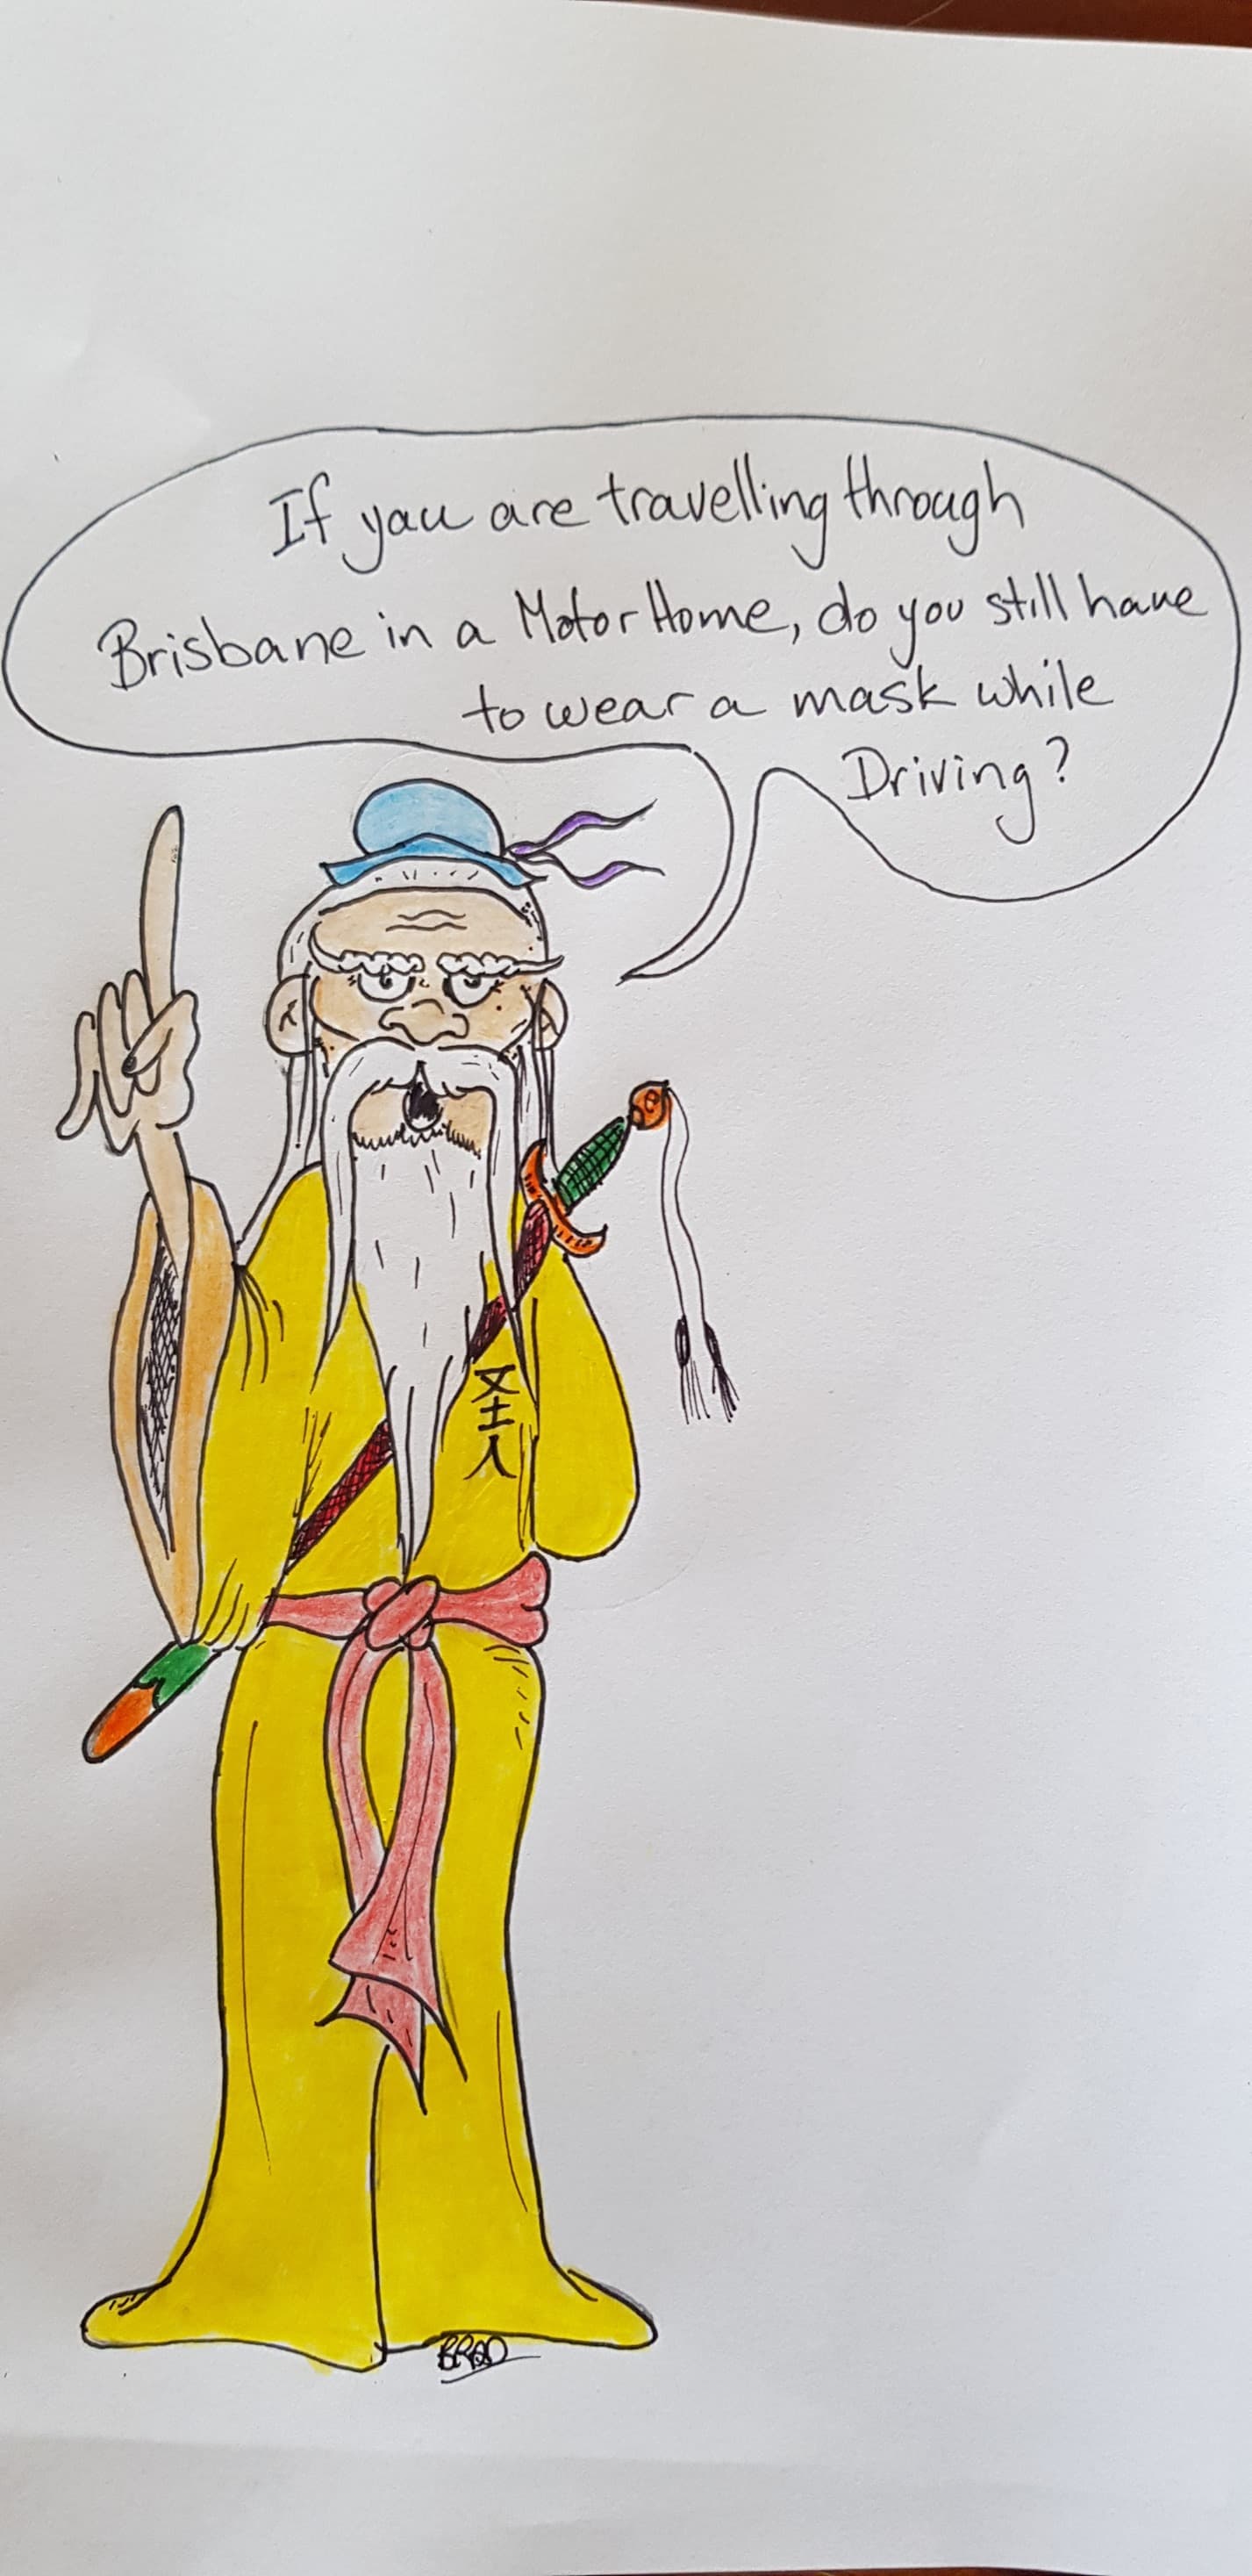 If you are travelling through
Brisbane in a Motor Home, do you still have
to wear a mask while
Driving?
圣
人
BRAD